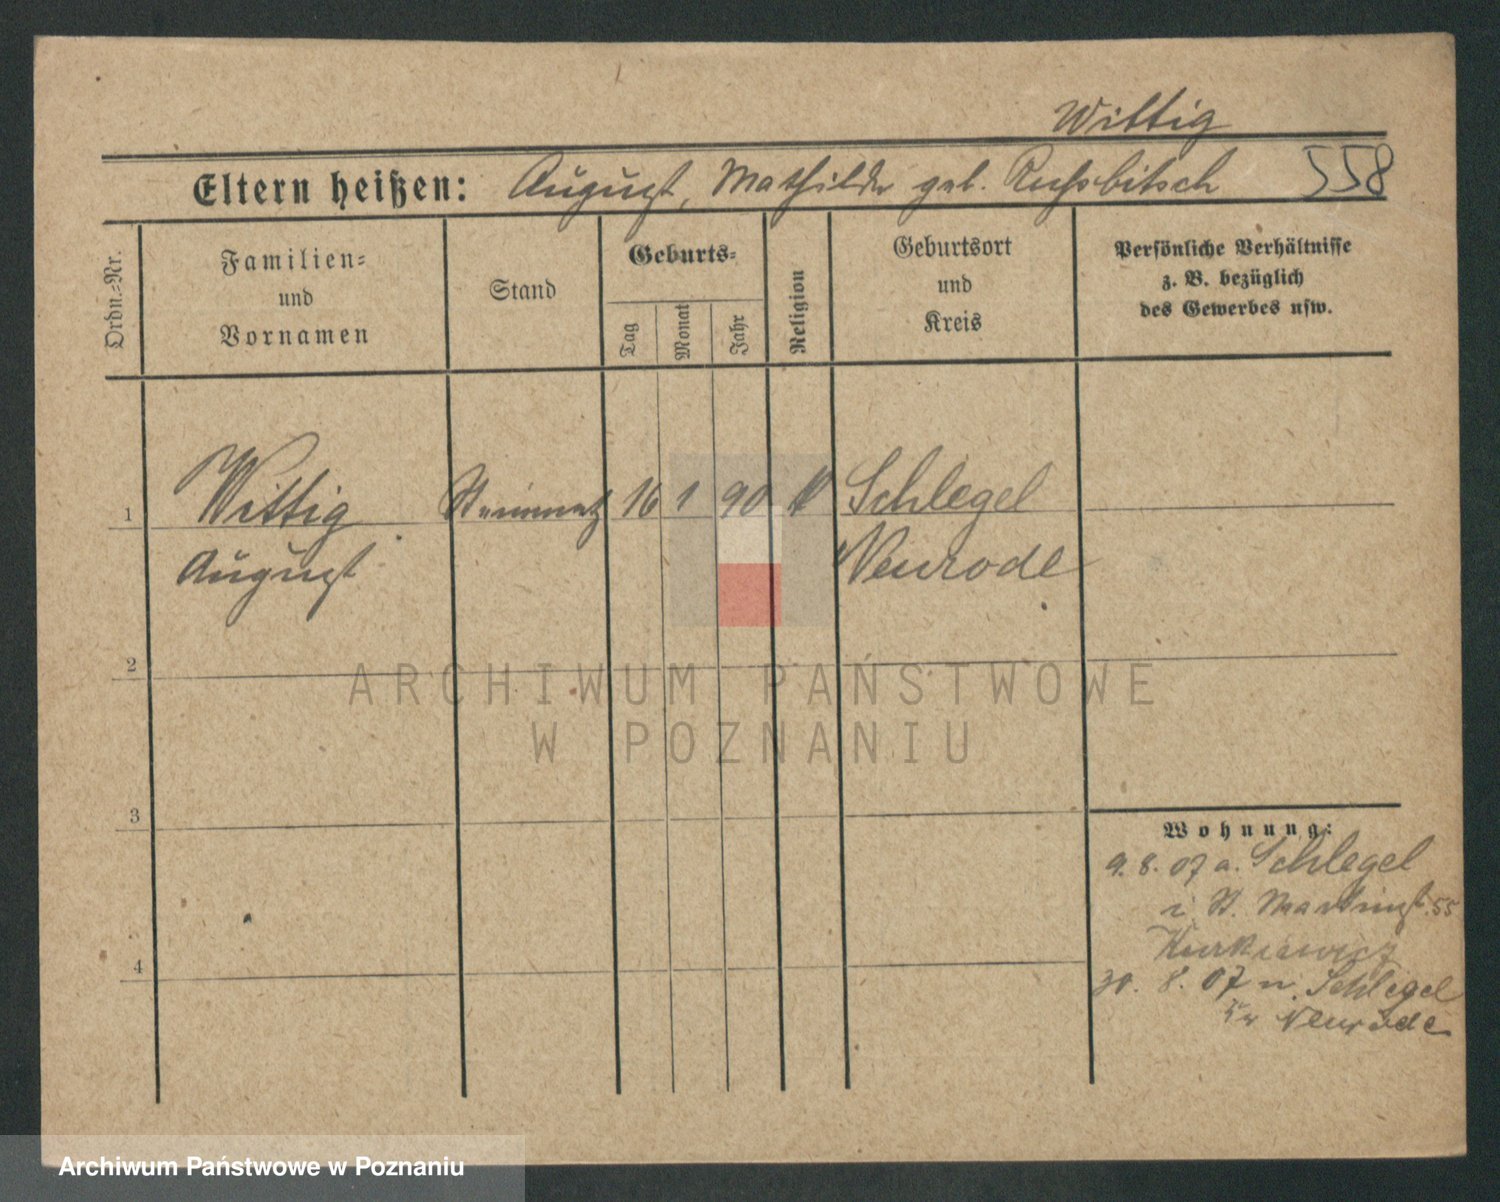 Wittig
Eltern heißen: August, Mathilde geb. 558
Ordn.-Nr.
Familien-
und
Vornamen
Stand
Geburts-
Tag
Monat
Jahr
Religion
Geburtsort
und
Kreis
Persönliche Verhältnisse
z. B. bezüglich
des Gewerbes usw.
1 Wittig Steinmetz 16 1 90 k Schlegel
August Neurode
2
ARCHIWUM PAŃSTWOWE
W POZNANIU
3
Wohnung:
9. 8. 07 a. Schlegel
i St. Martinst. 55
4
30. 8. 07 n. Schlegel
Kr Neurode
Archiwum Państwowe w Poznaniu